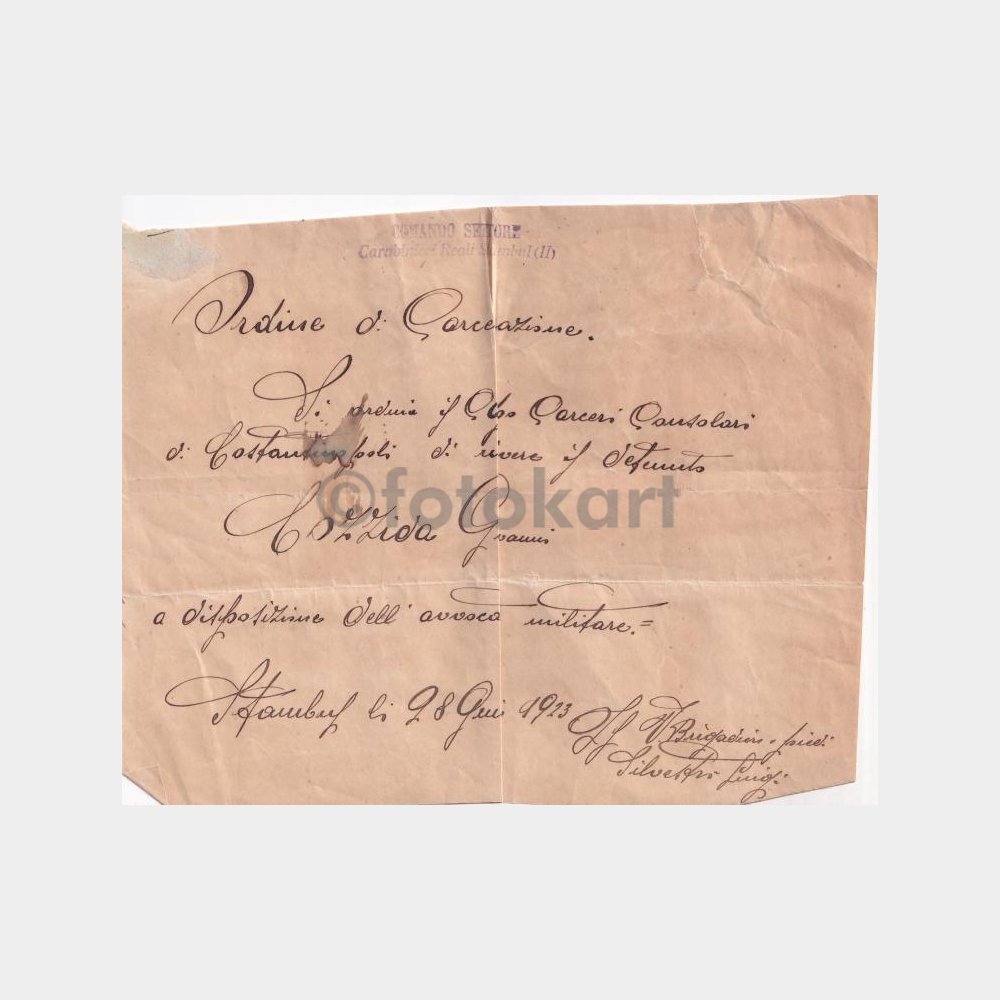 COMANDO SETTORE
Carabinieri Reali Stambul (II)
Ordine di Carceazione.
Si ordina il Capo Carceri Consolari
di Costantinopoli di rivere il detenuto
©fotokart
Cozzida Gioanni
a disposizione dell' avvoca militare.=
Stambul li 28 Giu 1923
Il V Brigadiere a piedi
Silvestri Luigi